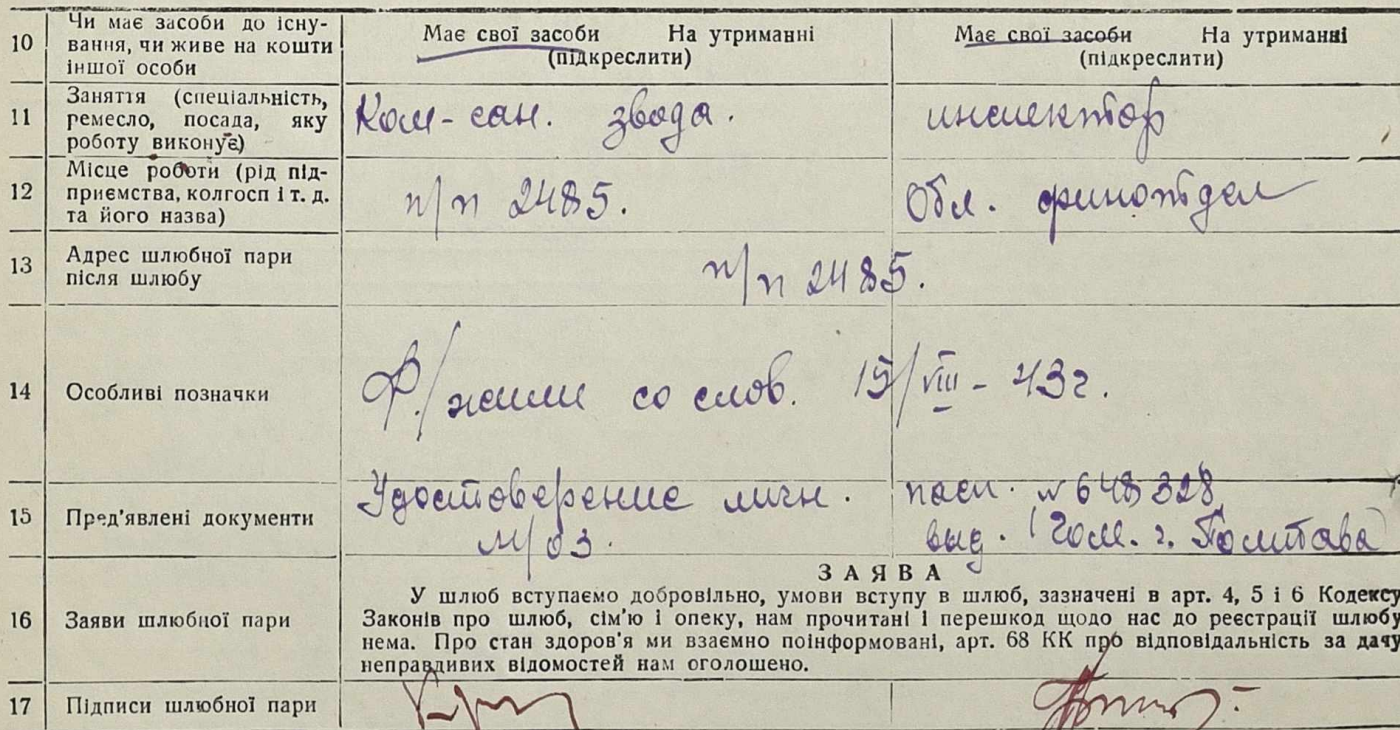 10 Чи має засоби до існу-
вання, чи живе на кошти
іншої особи
Має свої засоби На утриманні
(підкреслити)
Має свої засоби На утриманні
(підкреслити)
11 Заняття (спеціальність,
ремесло, посада, яку
роботу виконує)
Ком-сан. звода.
инспектор
12 Місце роботи (рід під-
приємства, колгосп і т. д.
та його назва)
п/п 2485.
Обл. финотдел
13 Адрес шлюбної пари
після шлюбу
п/п 2485.
14 Особливі позначки
Ф./жили со слов. 15/VIII - 43г.
15 Пред'явлені документи
Удостоверение личн.
№/03.
пасп. № 648328
выд. г. Полтава
16 Заяви шлюбної пари
ЗАЯВА
У шлюб вступаємо добровільно, умови вступу в шлюб, зазначені в арт. 4, 5 і 6 Кодексу
Законів про шлюб, сім'ю і опеку, нам прочитані і перешкод щодо нас до реєстрації шлюбу
нема. Про стан здоров'я ми взаємно поінформовані, арт. 68 КК про відповідальність за дачу
неправдивих відомостей нам оголошено.
17 Підписи шлюбної пари